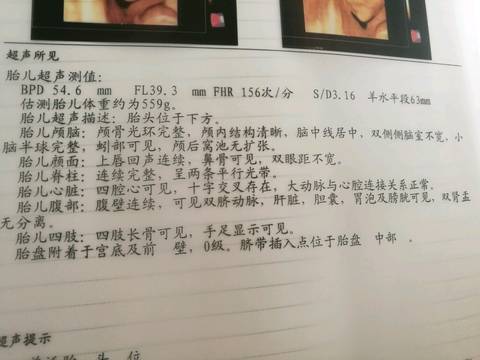 超声所见
胎儿超声测值:
BPD 54.6 mm FL39.3 mm FHR 156次/分 S/D3.16 羊水平段63mm
估测胎儿体重约为559g。
胎儿超声描述: 胎头位于下方。
胎儿颅脑: 颅骨光环完整, 颅内结构清晰, 脑中线居中, 双侧侧脑室不宽, 小
脑半球完整, 蚓部可见, 颅后窝池无扩张。
胎儿颜面: 上唇回声连续, 鼻骨可见, 双眼距不宽。
胎儿脊柱: 连续完整, 呈两条平行光带。
胎儿心脏: 四腔心可见, 十字交叉存在, 大动脉与心腔连接关系正常。
胎儿腹部: 腹壁连续, 可见双脐动脉, 肝脏, 胆囊, 胃泡及膀胱可见, 双肾盂
无分离。
胎儿四肢: 四肢长骨可见, 手足显示可见。
胎盘附着于宫底及前 壁, 0级。脐带插入点位于胎盘 中部 。
超声提示
头 位